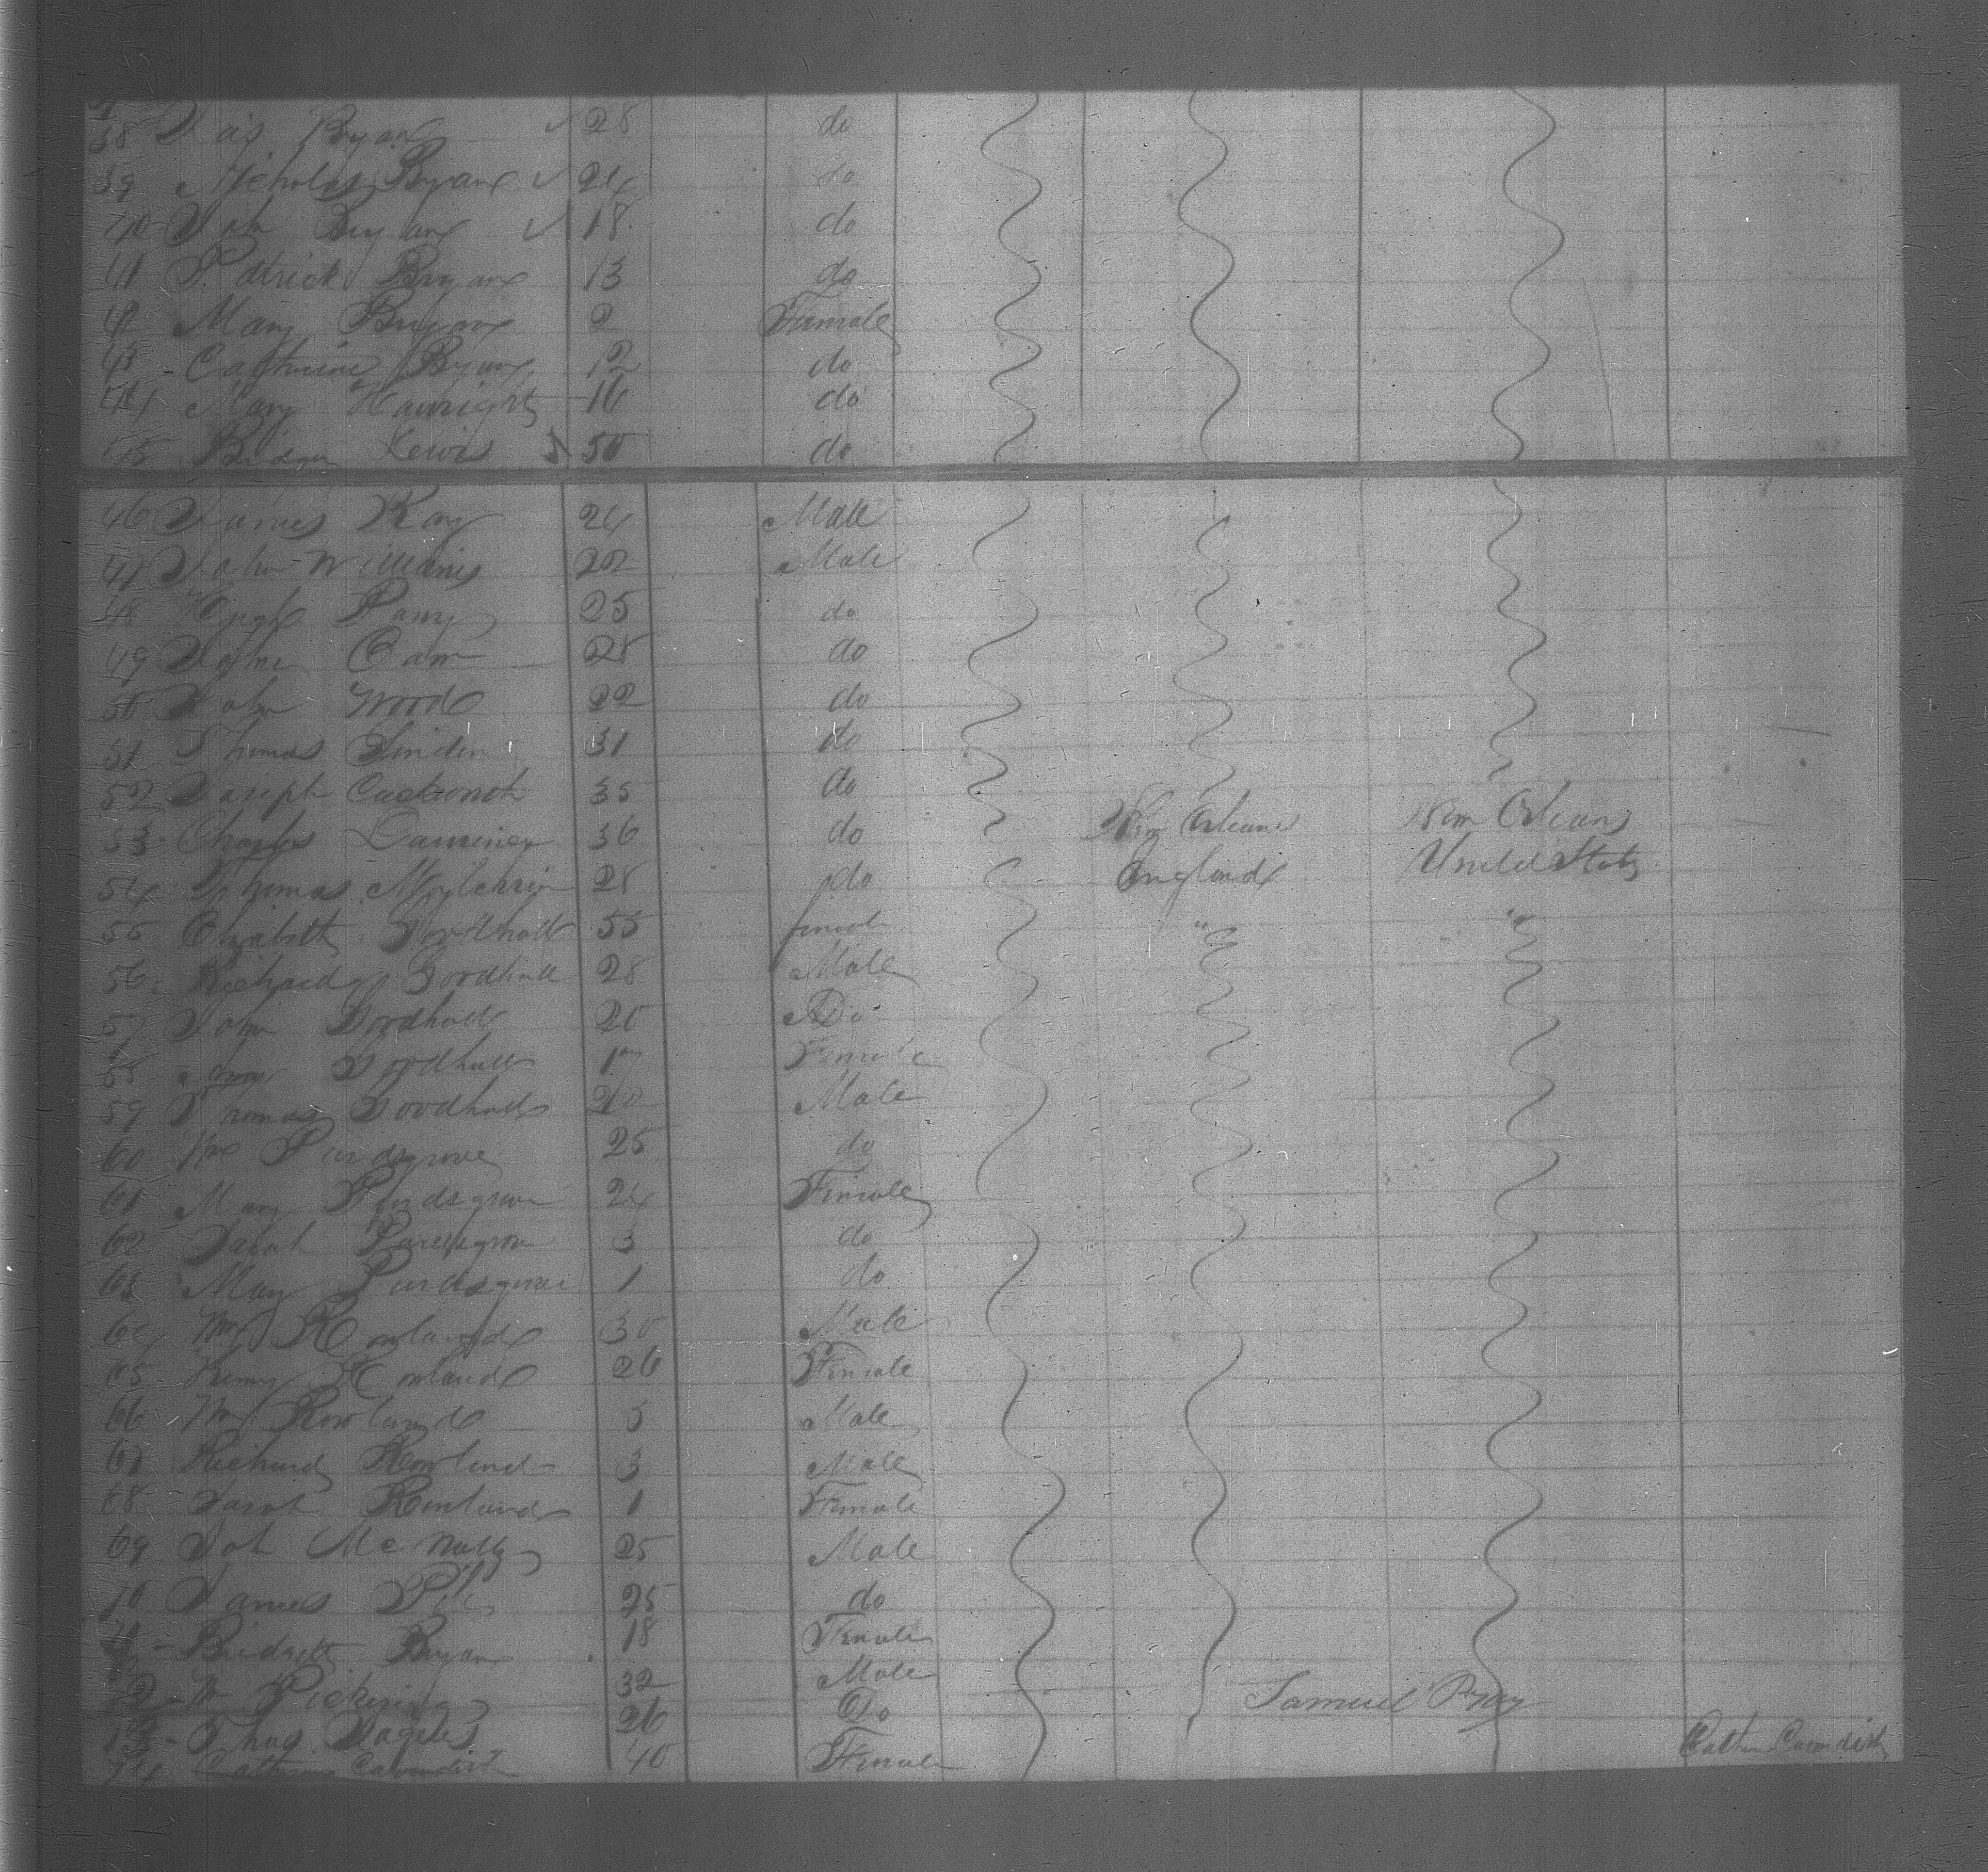 38 Jas Bryan ✓ 28 do
39 Nicholas Bryan ✓ 24 do
40 John Bryan ✓ 18 do
41 Patrick Bryan 13 do
42 Mary Bryan 2 Female
43 Catherine Bryan 12 do
44 Mary 16 do
45 Lewis 50 do
46 James Ray 24 Male
47 John Williams 22 Male
48 Hugh Parry 25 do
49 28 do
50 John Wood 22 do
51 Thomas Linden 31 do
52 Joseph 35 do
53 Charles 36 do New Orleans New Orleans
54 Thomas 28 do England United States
55 Elizabeth Goodhall 55 female " "
56 Richard Goodhall 28 Male
57 John Goodhall 20 Do
58 Goodhall Female
59 Thomas Goodhall Male
60 Wm Purdsgrove 25 do
61 Mary Purdsgrove 24 Female
62 Sarah Purdsgrove 3 do
63 Mary Purdsgrove 1 do
64 Wm Rowland 30 Male
65 Rowland 26 Female
66 Wm Rowland 5 Male
67 Richard Rowland 3 Male
68 Sarah Rowland 1 Female
69 Joh McNally 25 Male
70 James 25 do
71 Bridgett Bryan 18 Female
72 W Pickering 32 Male
73 Thos 26 Do Samuel
74 Catherine Cavendish 40 Female Cathn Cavendish